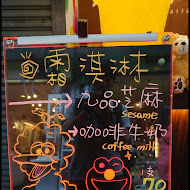 霜淇淋
九品芝麻
sesame
咖啡牛奶
coffee milk
1支
70